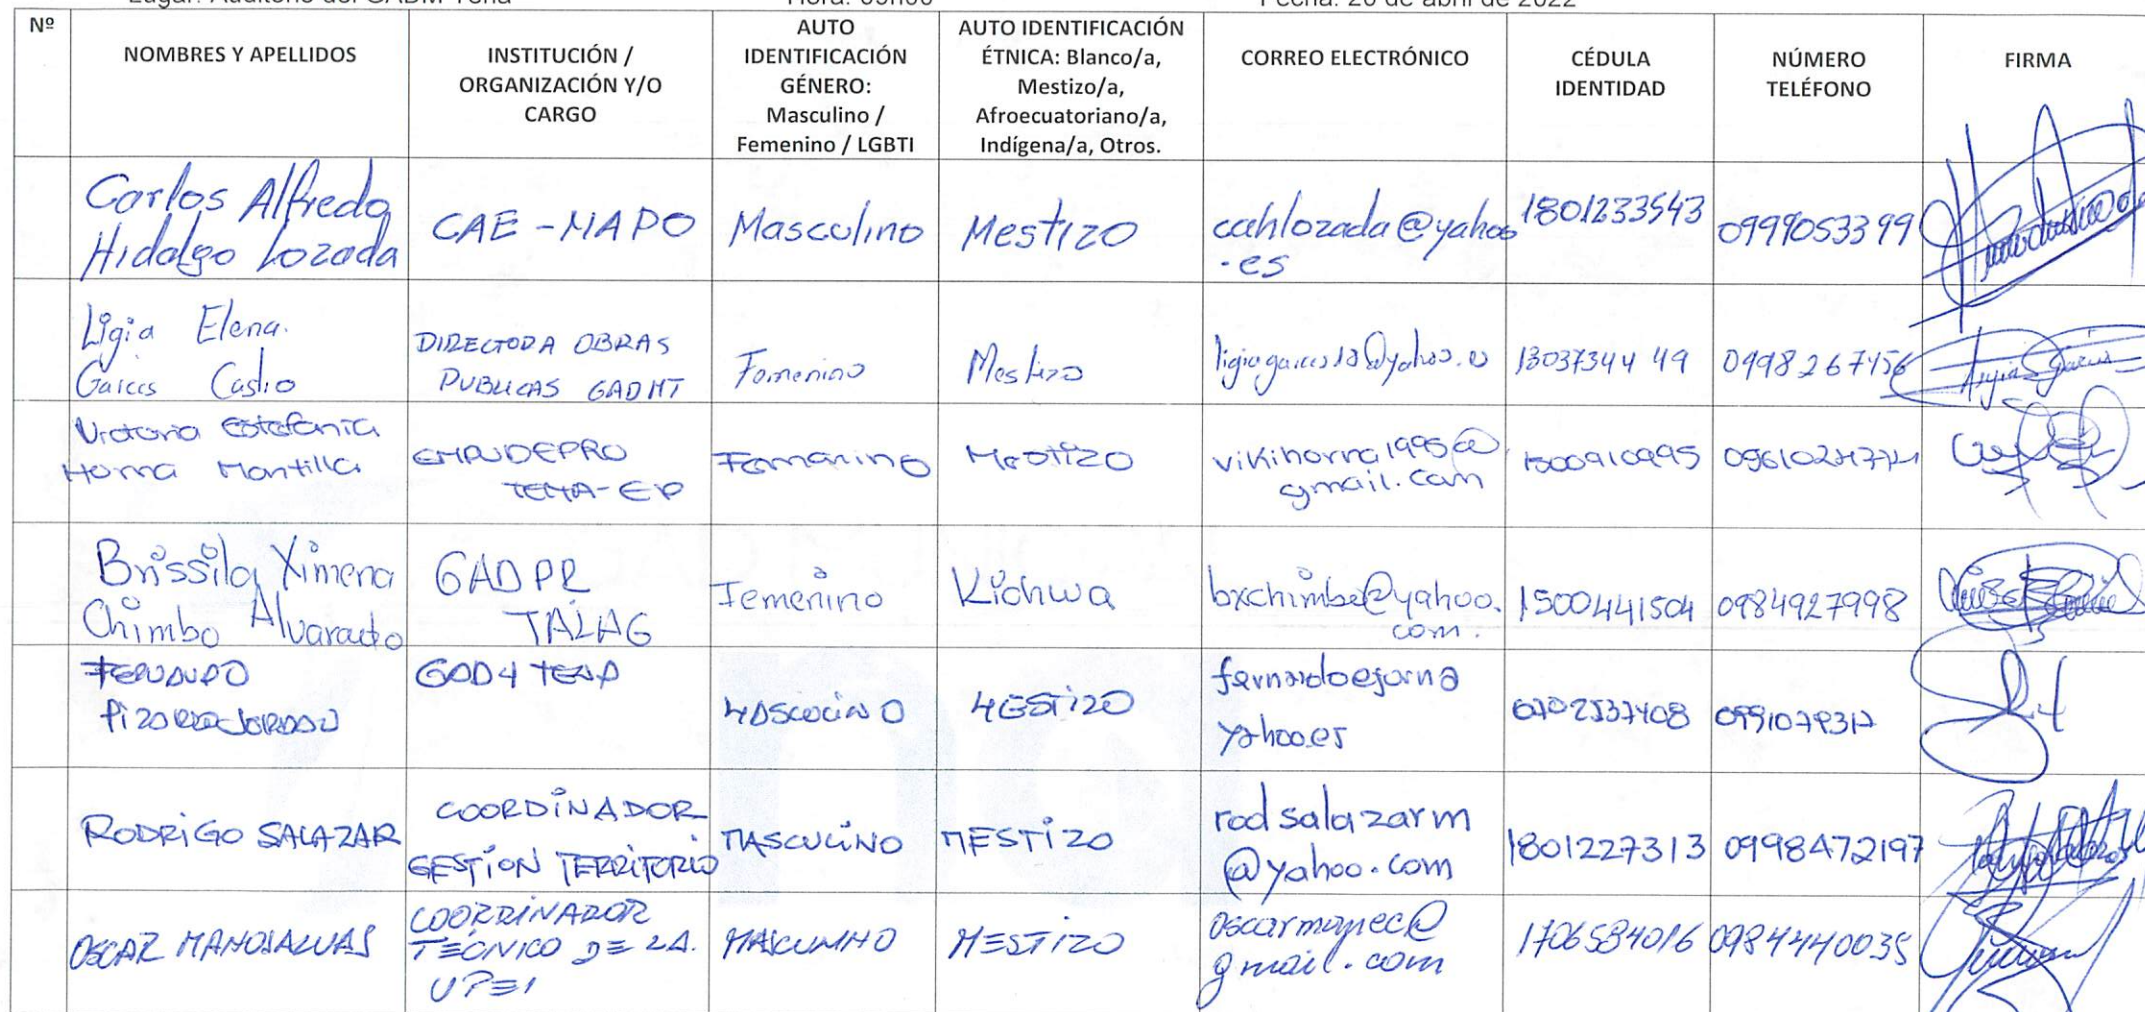 Lugar: Auditorio del GADM Tena Hora: 09h00 Fecha: 20 de abril de 2022
Nº
NOMBRES Y APELLIDOS
INSTITUCIÓN /
ORGANIZACIÓN Y/O
CARGO
AUTO
IDENTIFICACIÓN
GÉNERO:
Masculino /
Femenino / LGBTI
AUTO IDENTIFICACIÓN
ÉTNICA: Blanco/a,
Mestizo/a,
Afroecuatoriano/a,
Indígena/a, Otros.
CORREO ELECTRÓNICO
CÉDULA
IDENTIDAD
NÚMERO
TELÉFONO
FIRMA
Carlos Alfredo
Hidalgo Lozada
CAE-MAPO
Masculino
Mestizo
cahlozada@yahoo
.es
1801233543
0999053399
Ligia Elena.
Garces Castro
DIRECTORA OBRAS
PUBLICAS GADMT
Femenino
Mestizo
1303734449
0998267456
Victoria Estefania
Horna Mantilla
EMPUDEPRO
TENA-EP
Femenino
Mestizo
vikihorna1995@
gmail.com
1500910995
Brissila Ximena
Chimbo Alvarado
GADPR
TALAG
Femenino
Kichwa
bxchimbo@yahoo.
com.
1500441504
0984927998
FERNANDO
GADM TENA
MASCULINO
MESTIZO
yahoo.es
RODRIGO SALAZAR
COORDINADOR
GESTION TERRITORIO
MASCULINO
MESTIZO
rodsalazarm
@yahoo.com
1801227313
0998472197
OSCAR MANOSALVAS
COORDINADOR
TECNICO DE LA.
MASCULINO
MESTIZO
oscarmanec@
gmail.com
1706584016
0984440035